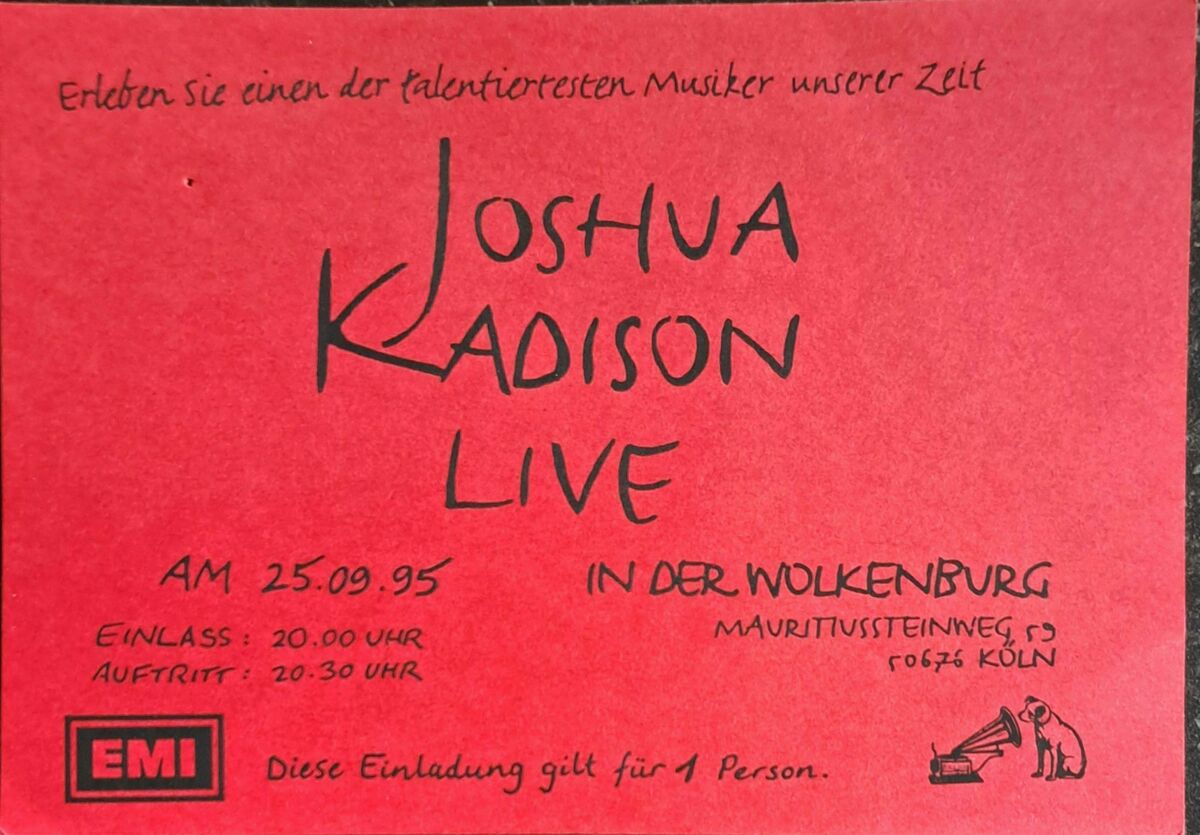 Erleben Sie einen der talentiertesten Musiker unserer Zeit
JOSHUA
KADISON
LIVE
AM 25.09.95
EINLASS: 20.00 UHR
AUFTRITT: 20.30 UHR
IN DER WOLKENBURG
MAURITIUSSTEINWEG 59
50676 KÖLN
EMI
Diese Einladung gilt für 1 Person.